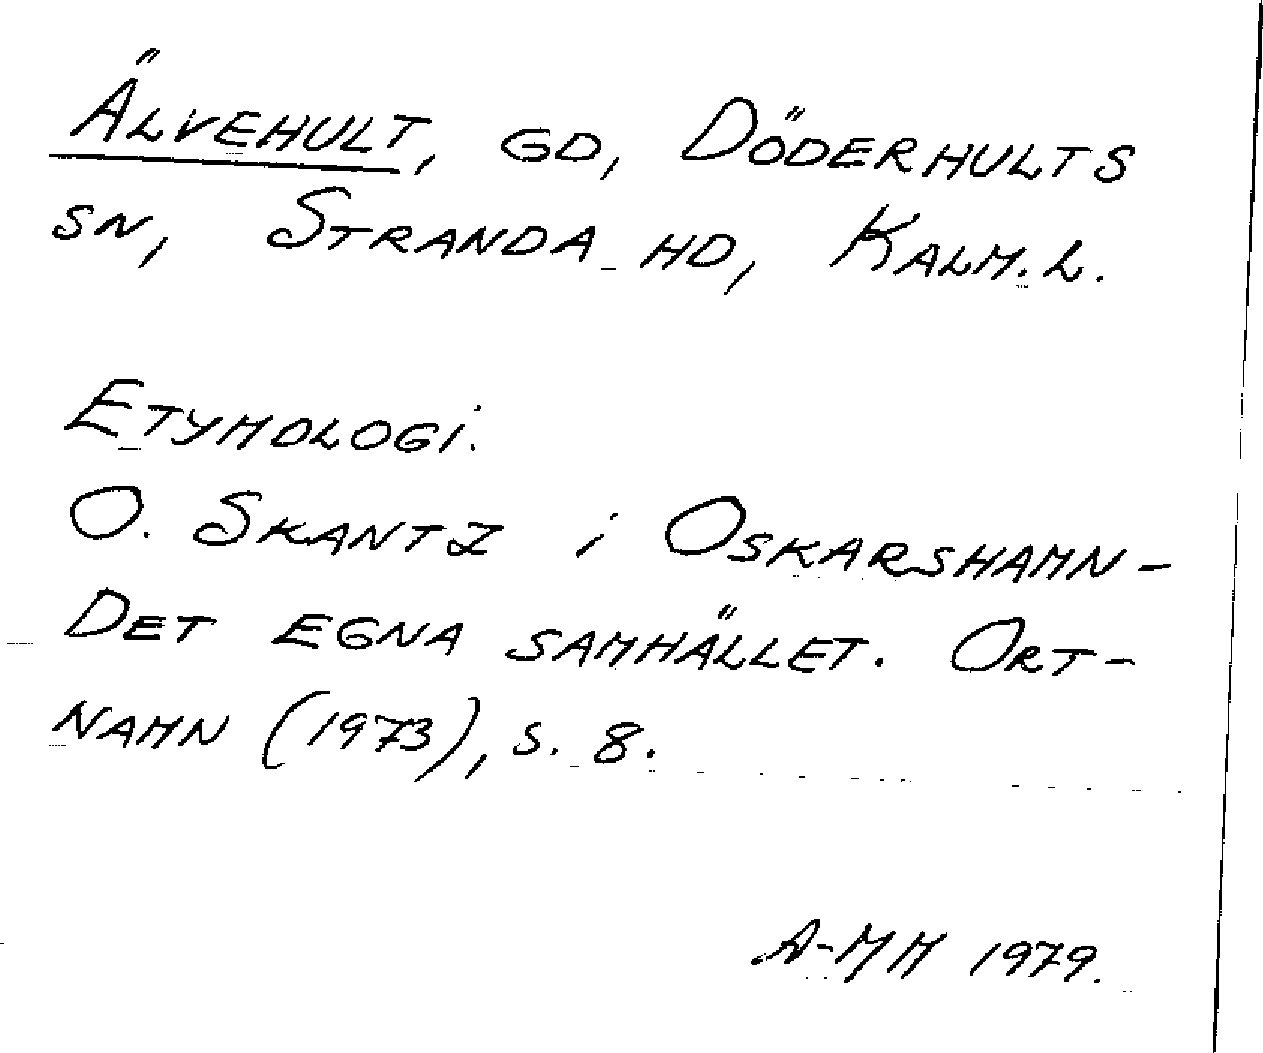 ÄLVEHULT, GD, DÖDERHULTS
SN, STRANDA HD, KALM. L.
ETYMOLOGI.
O. SKANTZ i OSKARSHAMN-
DET EGNA SAMHÄLLET. ORT-
NAMN (1973), S. 8.
A-MM 1979.